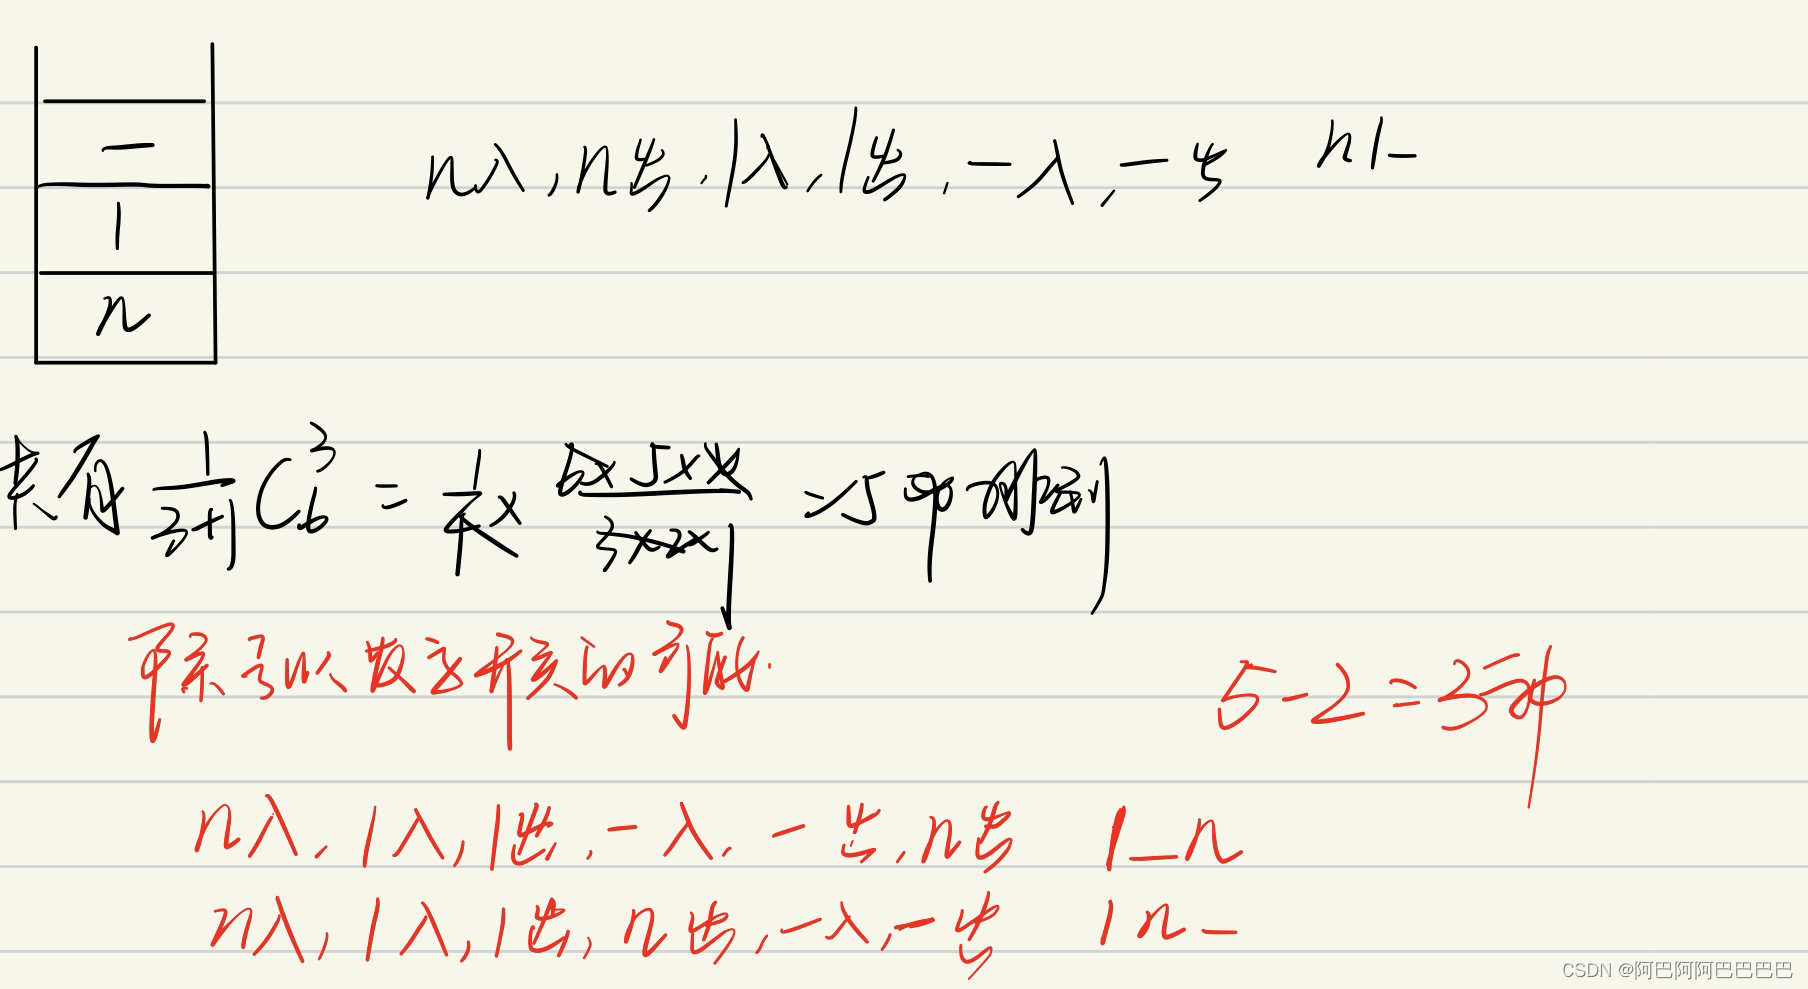 —
1
n
n入,n出,1入,1出,—入,—出 n1_
共有 1/(3+1) C₆³ = 1/4 × (6×5×4)/(3×2×1) = 5种排列
下来可以数字开头的可能.
5-2=3种
n入,1入,1出,—入,—出,n出 1_n
n入,1入,1出,n出,—入,—出 1n_
CSDN @阿巴阿阿巴巴巴巴